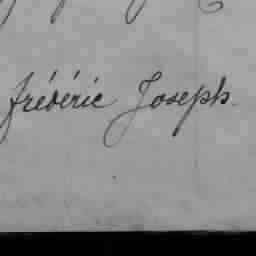 frédéric Joseph.